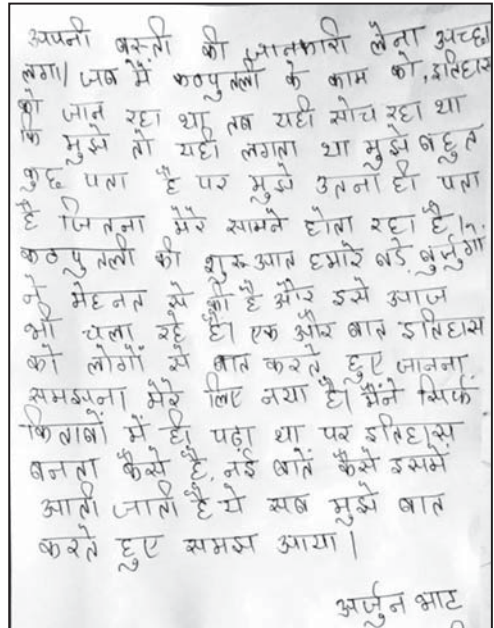 अपनी बस्ती की जानकारी लेना अच्छा
लगा। जब मैं कठपुतली के काम को, इतिहास
को जान रहा था तब यही सोच रहा था
कि मुझे तो यही लगता था मुझे बहुत
कुछ पता है पर मुझे उतना ही पता
है जितना मेरे सामने होता रहा है।
कठपुतली की शुरूआत हमारे बड़े बुर्जुगों
ने मेहनत से की है और इसे आज
भी चला रहे है। एक और बात इतिहास
को लोगों से बात करते हुए जानना
समझना मेरे लिए नया है। मैंने सिर्फ
किताबों में ही पढ़ा था पर इतिहास
बनता कैसे है, नई बातें कैसे इसमें
आती जाती है ये सब मुझे बात
करते हुए समझ आया।
अर्जुन भाट